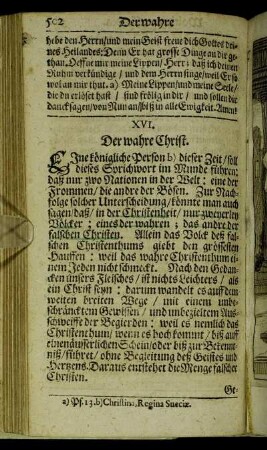 502 Der wahre
hebe den Herrn/und mein Geist freue dich Gottes dei-
nes Heilandes: Denn Er hat grosse Dinge an dir ge-
than. Oeffne mir meine Lippen/Herr: daß ich deinen
Ruhm verkündige/ und dem Herrn singe/weil Er so
wol an mir thut. a) Meine Lippen/und meine Seele/
die du erlöset hast/ sind frölig in dir/ und sollen dir
dancksagen/von Nun an/biß in alle Ewigkeit. Amen!
XVI.
Der wahre Christ.
EIne königliche Person b) dieser Zeit/soll
dieses Sprichwort im Munde führen;
daß nur zwo Nationen in der Welt: eine der
Frommen/ die andre der Bösen. Zur Nach-
folge solcher Unterscheidung/könnte man auch
sagen/daß/ in der Christenheit/nur zweyerley
Völcker: eines der wahren; das andre der
falschen Christen. Allein das Volck deß fal-
schen Christenthums giebt den grössesten
Hauffen: weil das wahre Christenthum ei-
nem Jeden nicht schmeckt. Nach den Gedan-
cken unsers Fleisches/ ist nichts leichters/ als
ein Christ seyn: darum wandelt es auf dem
weiten breiten Wege/ mit einem unbe-
schräncktem Gewissen/ und unbezieltem Aus-
schweiffe der Begierden: weil es nemlich das
Christenthum/ wenn es hoch kommt/ biß auf
einen äusserlichen Schein/oder biß zur Bekennt-
niß/führet/ ohne Begleitung deß Geistes und
Hertzens. Daraus entstehet die Menge falscher
Christen.
Ge-
a) Ps. 13. b) Christina, Regina Sueciæ.